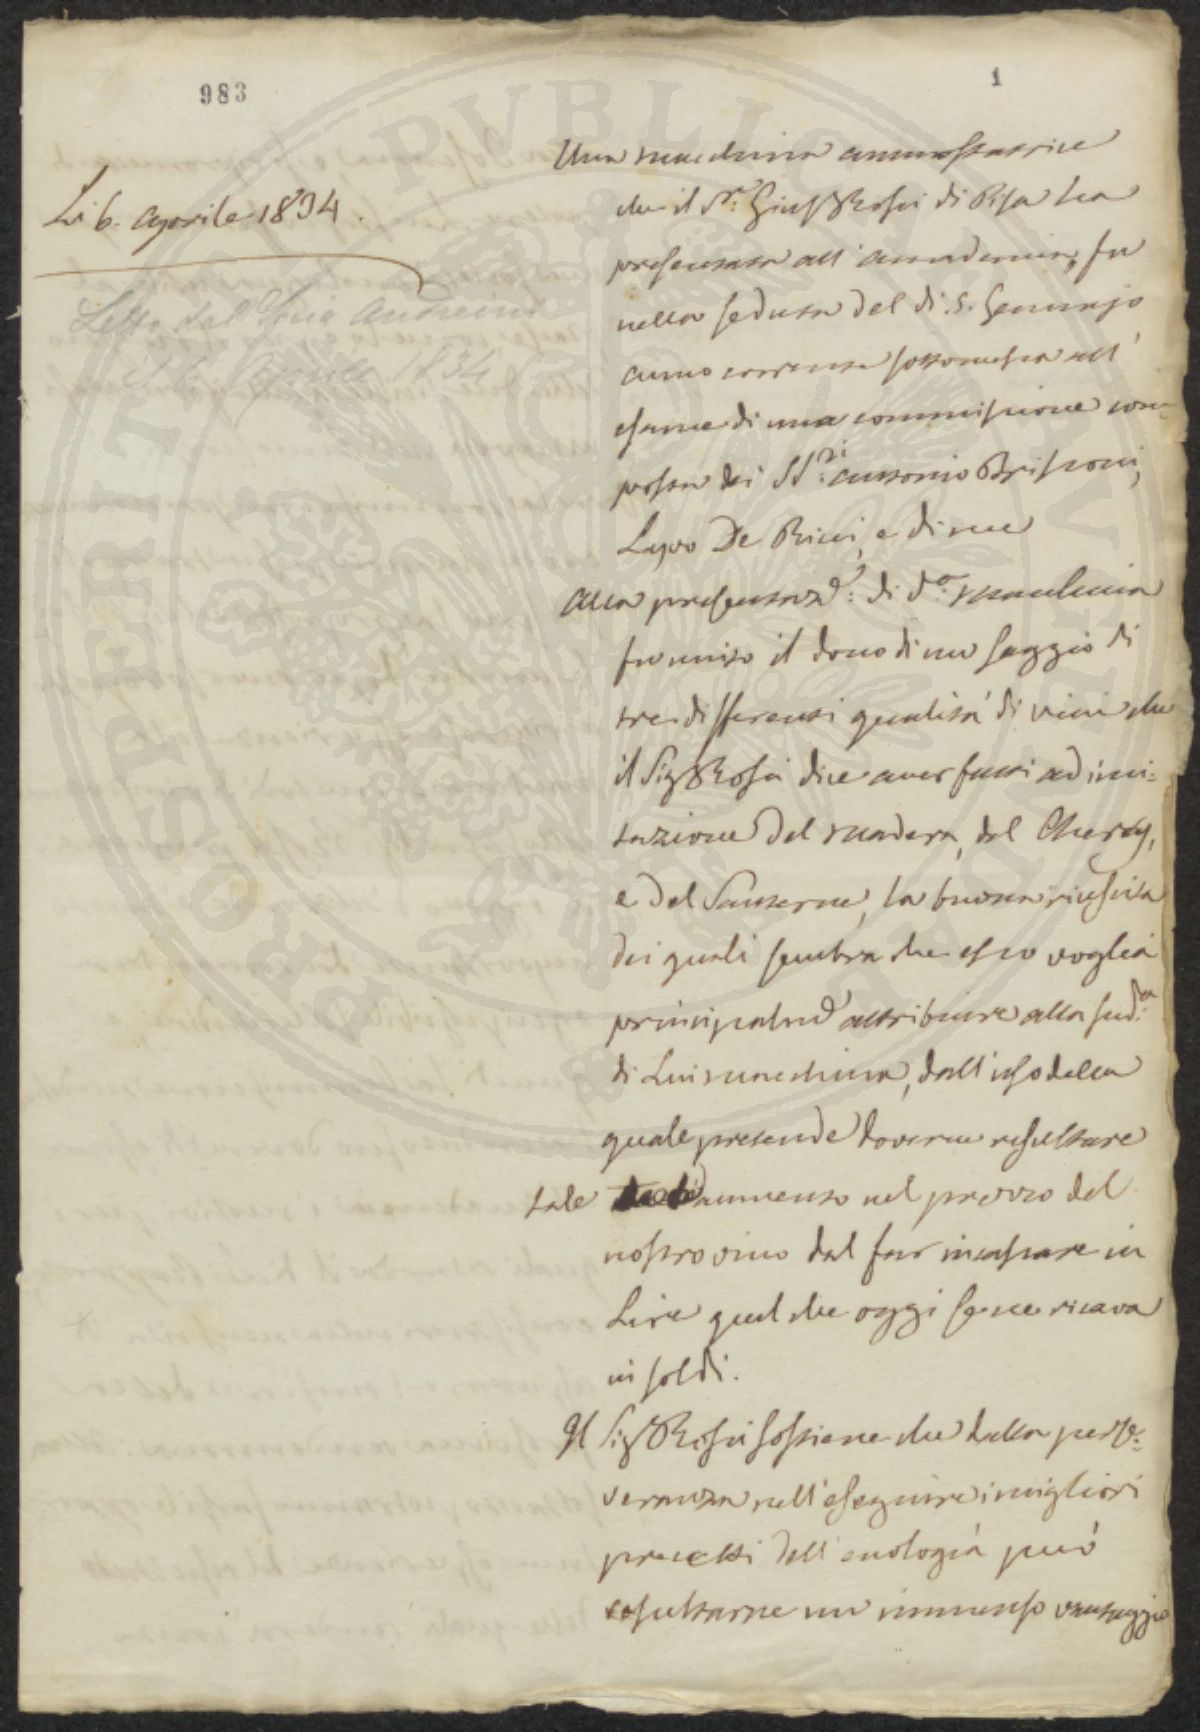 983
1
Li 6. Aprile 1834.
Letto dal Socio Andreini
il 6 Aprile 1834
Una macchina ammostatrice
che il S.r Gius. Rossi di Pisa ha
presentata all'accademia, fu
nella seduta del dì 5. Gennajo
anno corrente sottomessa all'
esame di una commissione com-
posta dei SS.ri Antonio Brissoni,
Lapo De Ricci, e di me
Alla presentaz.e di d.a macchina
fu unito il dono di un saggio di
tre differenti qualità di vini che
il Sig. Rossi dice aver fatti ad imi-
tazione del madera, del Cherey,
e del Sauterne, la buona riuscita
dei quali sembra che esso voglia
principalm.e attribuire alla sud.a
di Lui macchina, dall'uso della
quale pretende doverne resultare
tale aumento nel prezzo del
nostro vino dal far incassare in
Lire quel che oggi se ne ricava
in soldi.
Il Sig. Rossi sostiene che dalla perse-
veranza nell'eseguire i migliori
precetti dell'enologia può
resultarne un immenso vantaggio